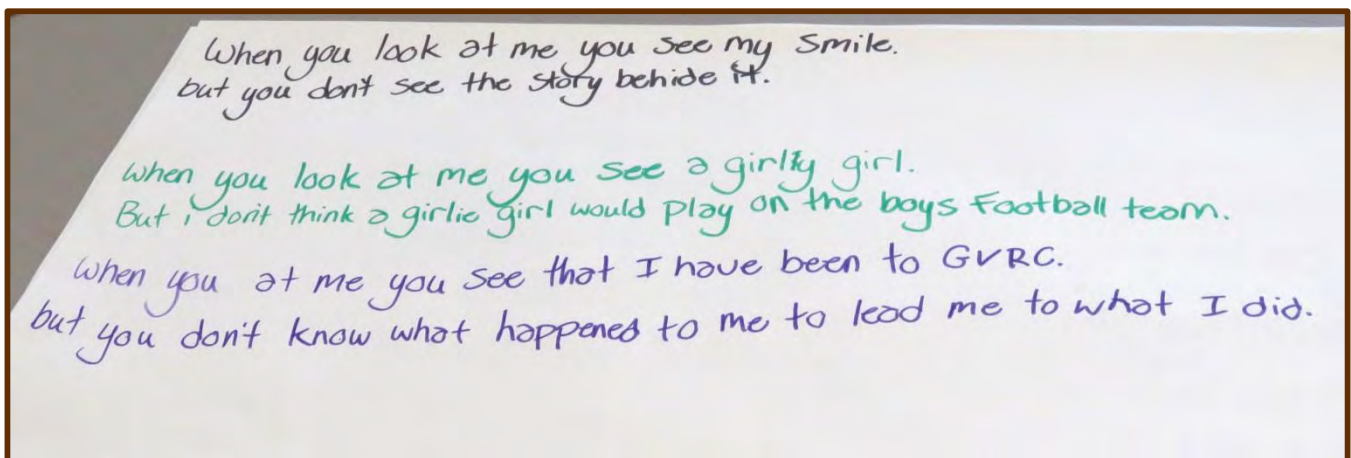 When you look at me you see my Smile.
but you don't see the story behide it.
When you look at me you see a girlly girl.
But i don't think a girlie girl would play on the boys Football team.
When you at me you see that I have been to GVRC.
but you don't know what happened to me to lead me to what I did.